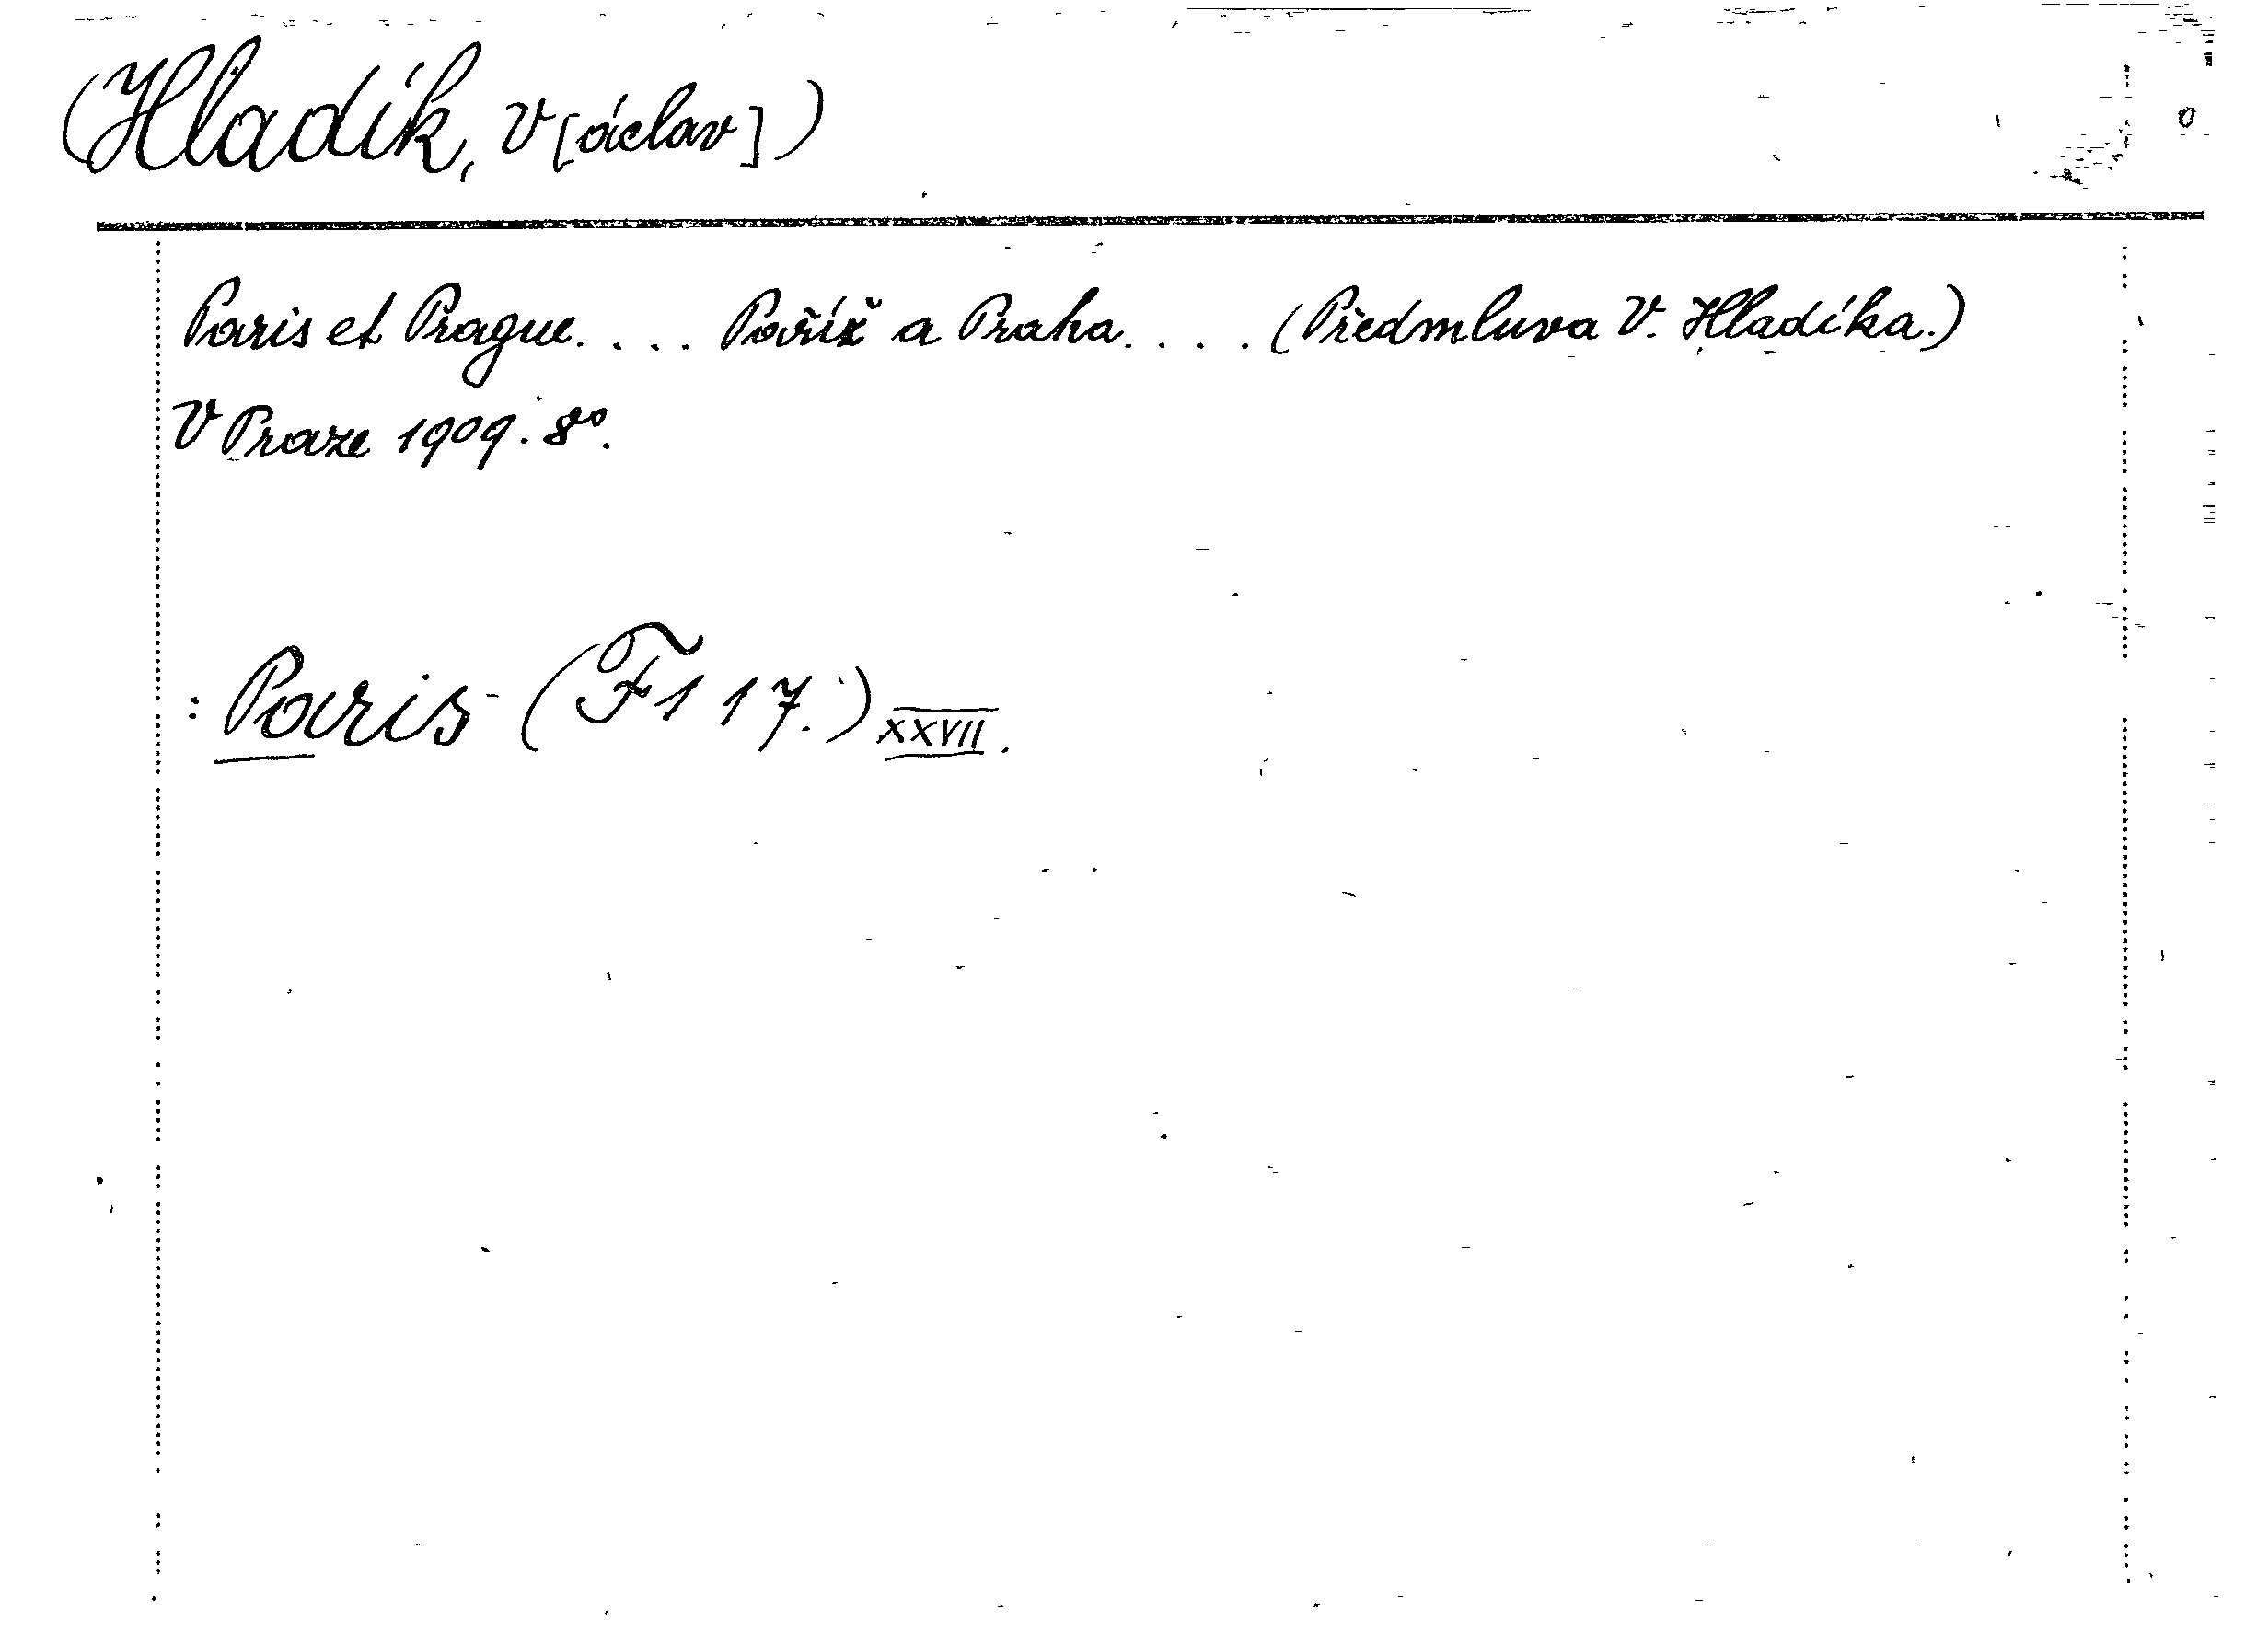 (Hladík, V[áclav])
Paris et Prague. . . . Paříž a Praha. . . . (Předmluva V. Hladíka.)
V Praze 1909. 8°.
: Paris (F 1 17.) XXVII.